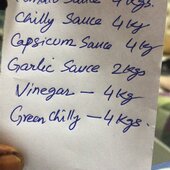 Tomato Sauce 4 Kgs.
Chilly Sauce 4 Kg
Capsicum Sauce 4 Kg
Garlic Sauce 2 Kgs
Vinegar — 4 Kg
Green Chilly — 4 Kgs.